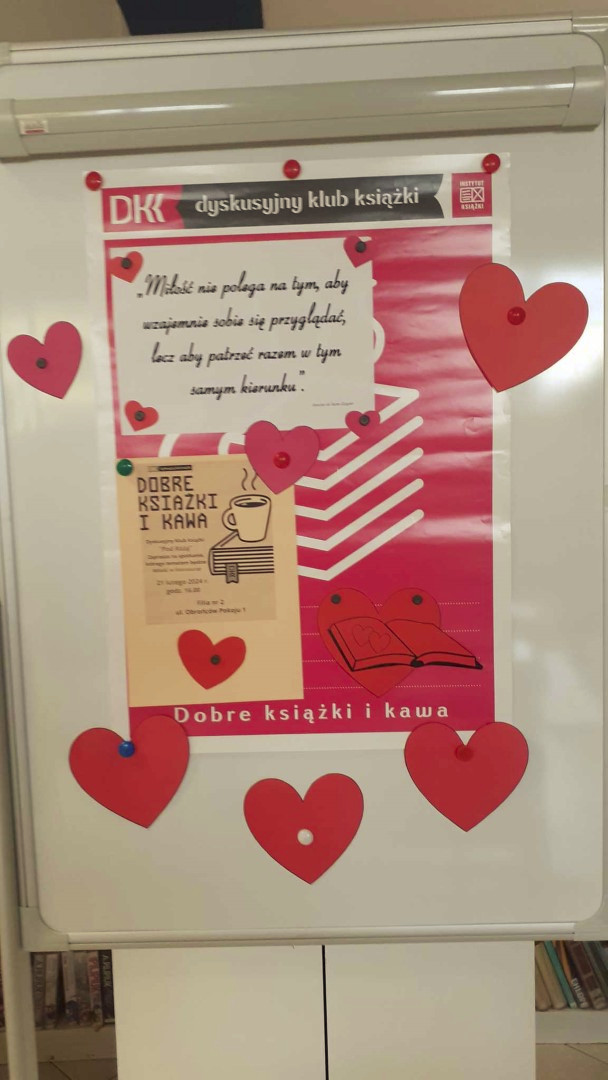 DKK
dyskusyjny klub książki
INSTYTUT
KSIĄŻKI
„Miłość nie polega na tym, aby
wzajemnie sobie się przyglądać,
lecz aby patrzeć razem w tym
samym kierunku”.
DOBRE
KSIĄŻKI
I KAWA
Dyskusyjny Klub Książki
"Pod Kozą"
Zaprasza na spotkanie,
którego tematem będzie
21 lutego 2024 r.
godz. 16.00
Filia nr 2
ul. Obrońców Pokoju 1
Dobre książki i kawa